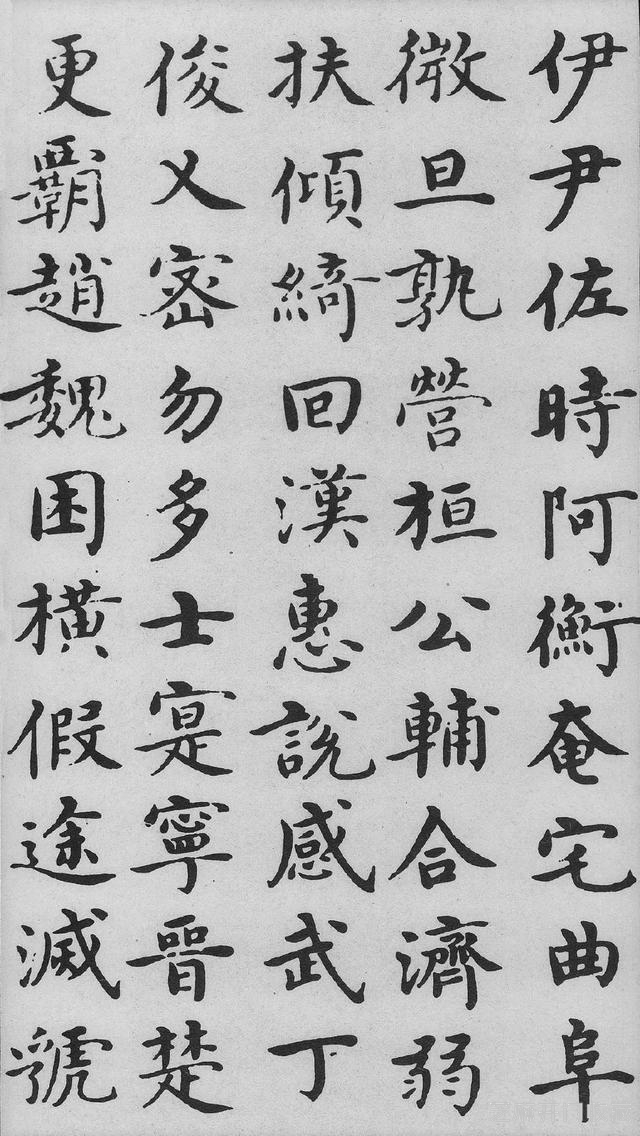 伊尹佐時阿衡奄宅曲阜
微旦孰營桓公輔合濟弱
扶傾綺回漢惠說感武丁
俊乂密勿多士寔寧晉楚
更霸趙魏困橫假途滅虢